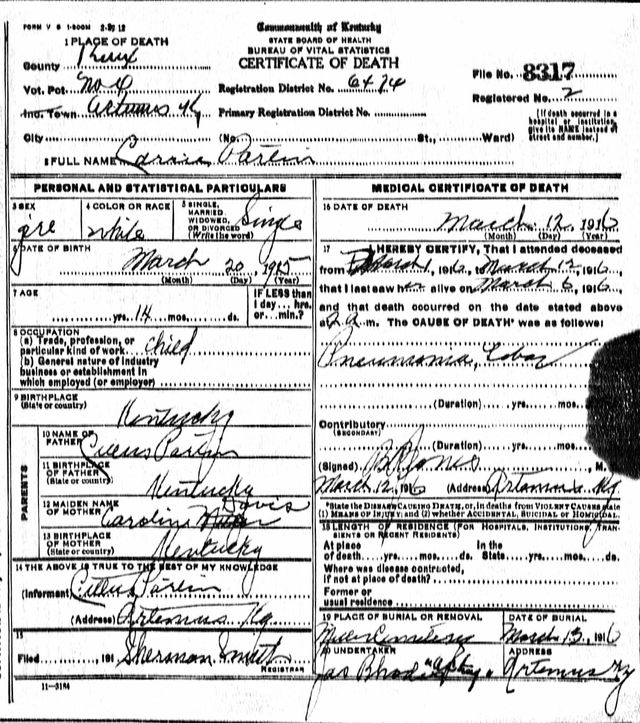 FORM V S 1-500M 2-27 12
Commonwealth of Kentucky
STATE BOARD OF HEALTH
BUREAU OF VITAL STATISTICS
CERTIFICATE OF DEATH
1 PLACE OF DEATH
County Knox
Vot. Pct.
Inc. Town Artemus Ky
City
Registration District No. 6474
Primary Registration District No.
(No. St., Ward)
File No. 8317
Registered No. 2
[If death occurred in a hospital or institution, give its NAME instead of street and number.]
2 FULL NAME Parlin
PERSONAL AND STATISTICAL PARTICULARS
3 SEX
4 COLOR OR RACE white
5 SINGLE, MARRIED, WIDOWED, OR DIVORCED (Write the word) Single
6 DATE OF BIRTH
March 20, 1915
(Month) (Day) (Year)
7 AGE
yrs. 14 mos. ds.
IF LESS than 1 day... hrs. or... min.?
8 OCCUPATION
(a) Trade, profession, or particular kind of work child
(b) General nature of industry business or establishment in which employed (or employer)
9 BIRTHPLACE
(State or country)
Kentucky
PARENTS
10 NAME OF FATHER Parlin
11 BIRTHPLACE OF FATHER
(State or country) Kentucky
12 MAIDEN NAME OF MOTHER Caroline Davis
13 BIRTHPLACE OF MOTHER
(State or country) Kentucky
14 THE ABOVE IS TRUE TO THE BEST OF MY KNOWLEDGE
(Informant) Parlin
(Address) Artemus Ky
15
Filed , 191 Sherman Smith
REGISTRAR
11-3184
MEDICAL CERTIFICATE OF DEATH
16 DATE OF DEATH
March 12, 1916
(Month) (Day) (Year)
17 I HEREBY CERTIFY, That I attended deceased
from March 1, 1916, to March 12, 1916
that I last saw her alive on March 6, 1916
and that death occurred on the date stated above
at 2 a m. The CAUSE OF DEATH* was as follows:
Pneumonia, Lobar
(Duration) yrs. mos.
Contributory
(SECONDARY)
(Duration) yrs. mos.
(Signed) Jones , M.
March 12, 1916 (Address) Artemus Ky.
*State the DISEASE CAUSING DEATH, or, in deaths from VIOLENT CAUSES state (1) MEANS OF INJURY; and (2) whether ACCIDENTAL, SUICIDAL or HOMICIDAL.
18 LENGTH OF RESIDENCE (FOR HOSPITALS, INSTITUTIONS, TRANSIENTS OR RECENT RESIDENTS)
At place of death yrs. mos. ds. In the State yrs. mos. ds.
Where was disease contracted, if not at place of death?
Former or usual residence
19 PLACE OF BURIAL OR REMOVAL
DATE OF BURIAL
March 13, 1916
20 UNDERTAKER
ADDRESS
Artemus Ky